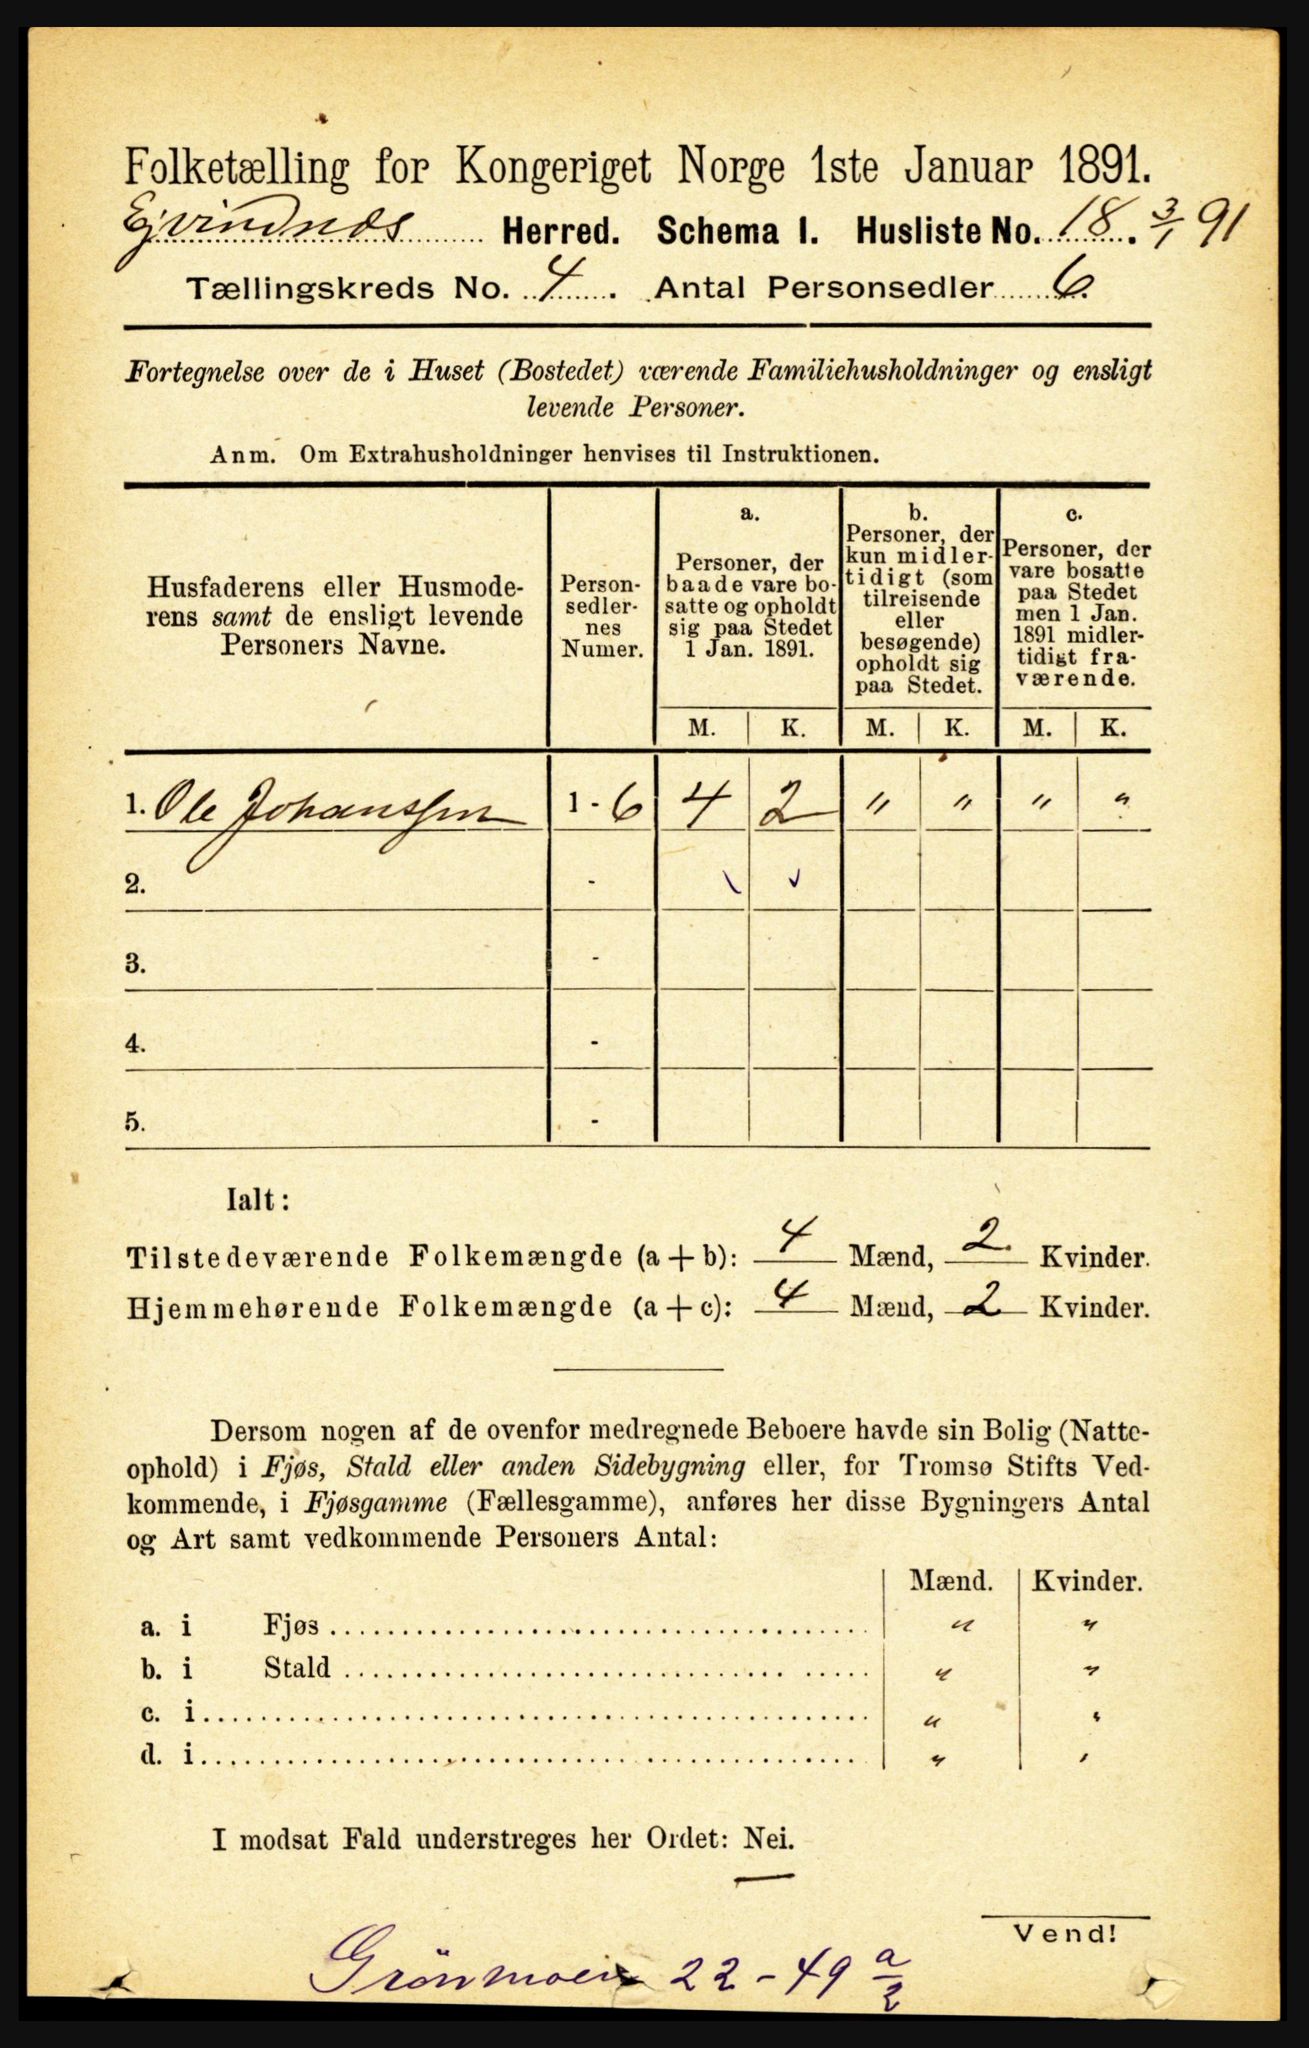 Folketælling for Kongeriget Norge 1ste Januar 1891.
Ejvindnæs Herred. Schema I. Husliste No. 18. 3/1 91
Tællingskreds No. 4. Antal Personsedler 6.
Fortegnelse over de i Huset (Bostedet) værende Familiehusholdninger og ensligt
levende Personer.
Anm. Om Extrahusholdninger henvises til Instruktionen.
Husfaderens eller Husmode-
rens samt de ensligt levende
Personers Navne.
Person-
sedler-
nes
Numer.
a.
Personer, der
baade vare bo-
satte og opholdt
sig paa Stedet
1 Jan. 1891.
b.
Personer, der
kun midler-
tidigt (som
tilreisende
eller
besøgende)
opholdt sig
paa Stedet.
c.
Personer, der
vare bosatte
paa Stedet
men 1 Jan.
1891 midler-
tidigt fra-
værende.
M. K. M. K. M. K.
1. Ole Johanssen 1 - 6 4 2 " " " "
2. -
3. -
4. -
5. -
Ialt:
Tilstedeværende Folkemængde (a + b): 4 Mænd, 2 Kvinder.
Hjemmehørende Folkemængde (a + c): 4 Mænd, 2 Kvinder.
Dersom nogen af de ovenfor medregnede Beboere havde sin Bolig (Natte-
ophold) i Fjøs, Stald eller anden Sidebygning eller, for Tromsø Stifts Ved-
kommende, i Fjøsgamme (Fællesgamme), anføres her disse Bygningers Antal
og Art samt vedkommende Personers Antal:
Mænd. Kvinder.
a. i Fjøs " "
b. i Stald " "
c. i " "
d. i " "
I modsat Fald understreges her Ordet: Nei.
Vend!
Grönmoen 22-49 a/2